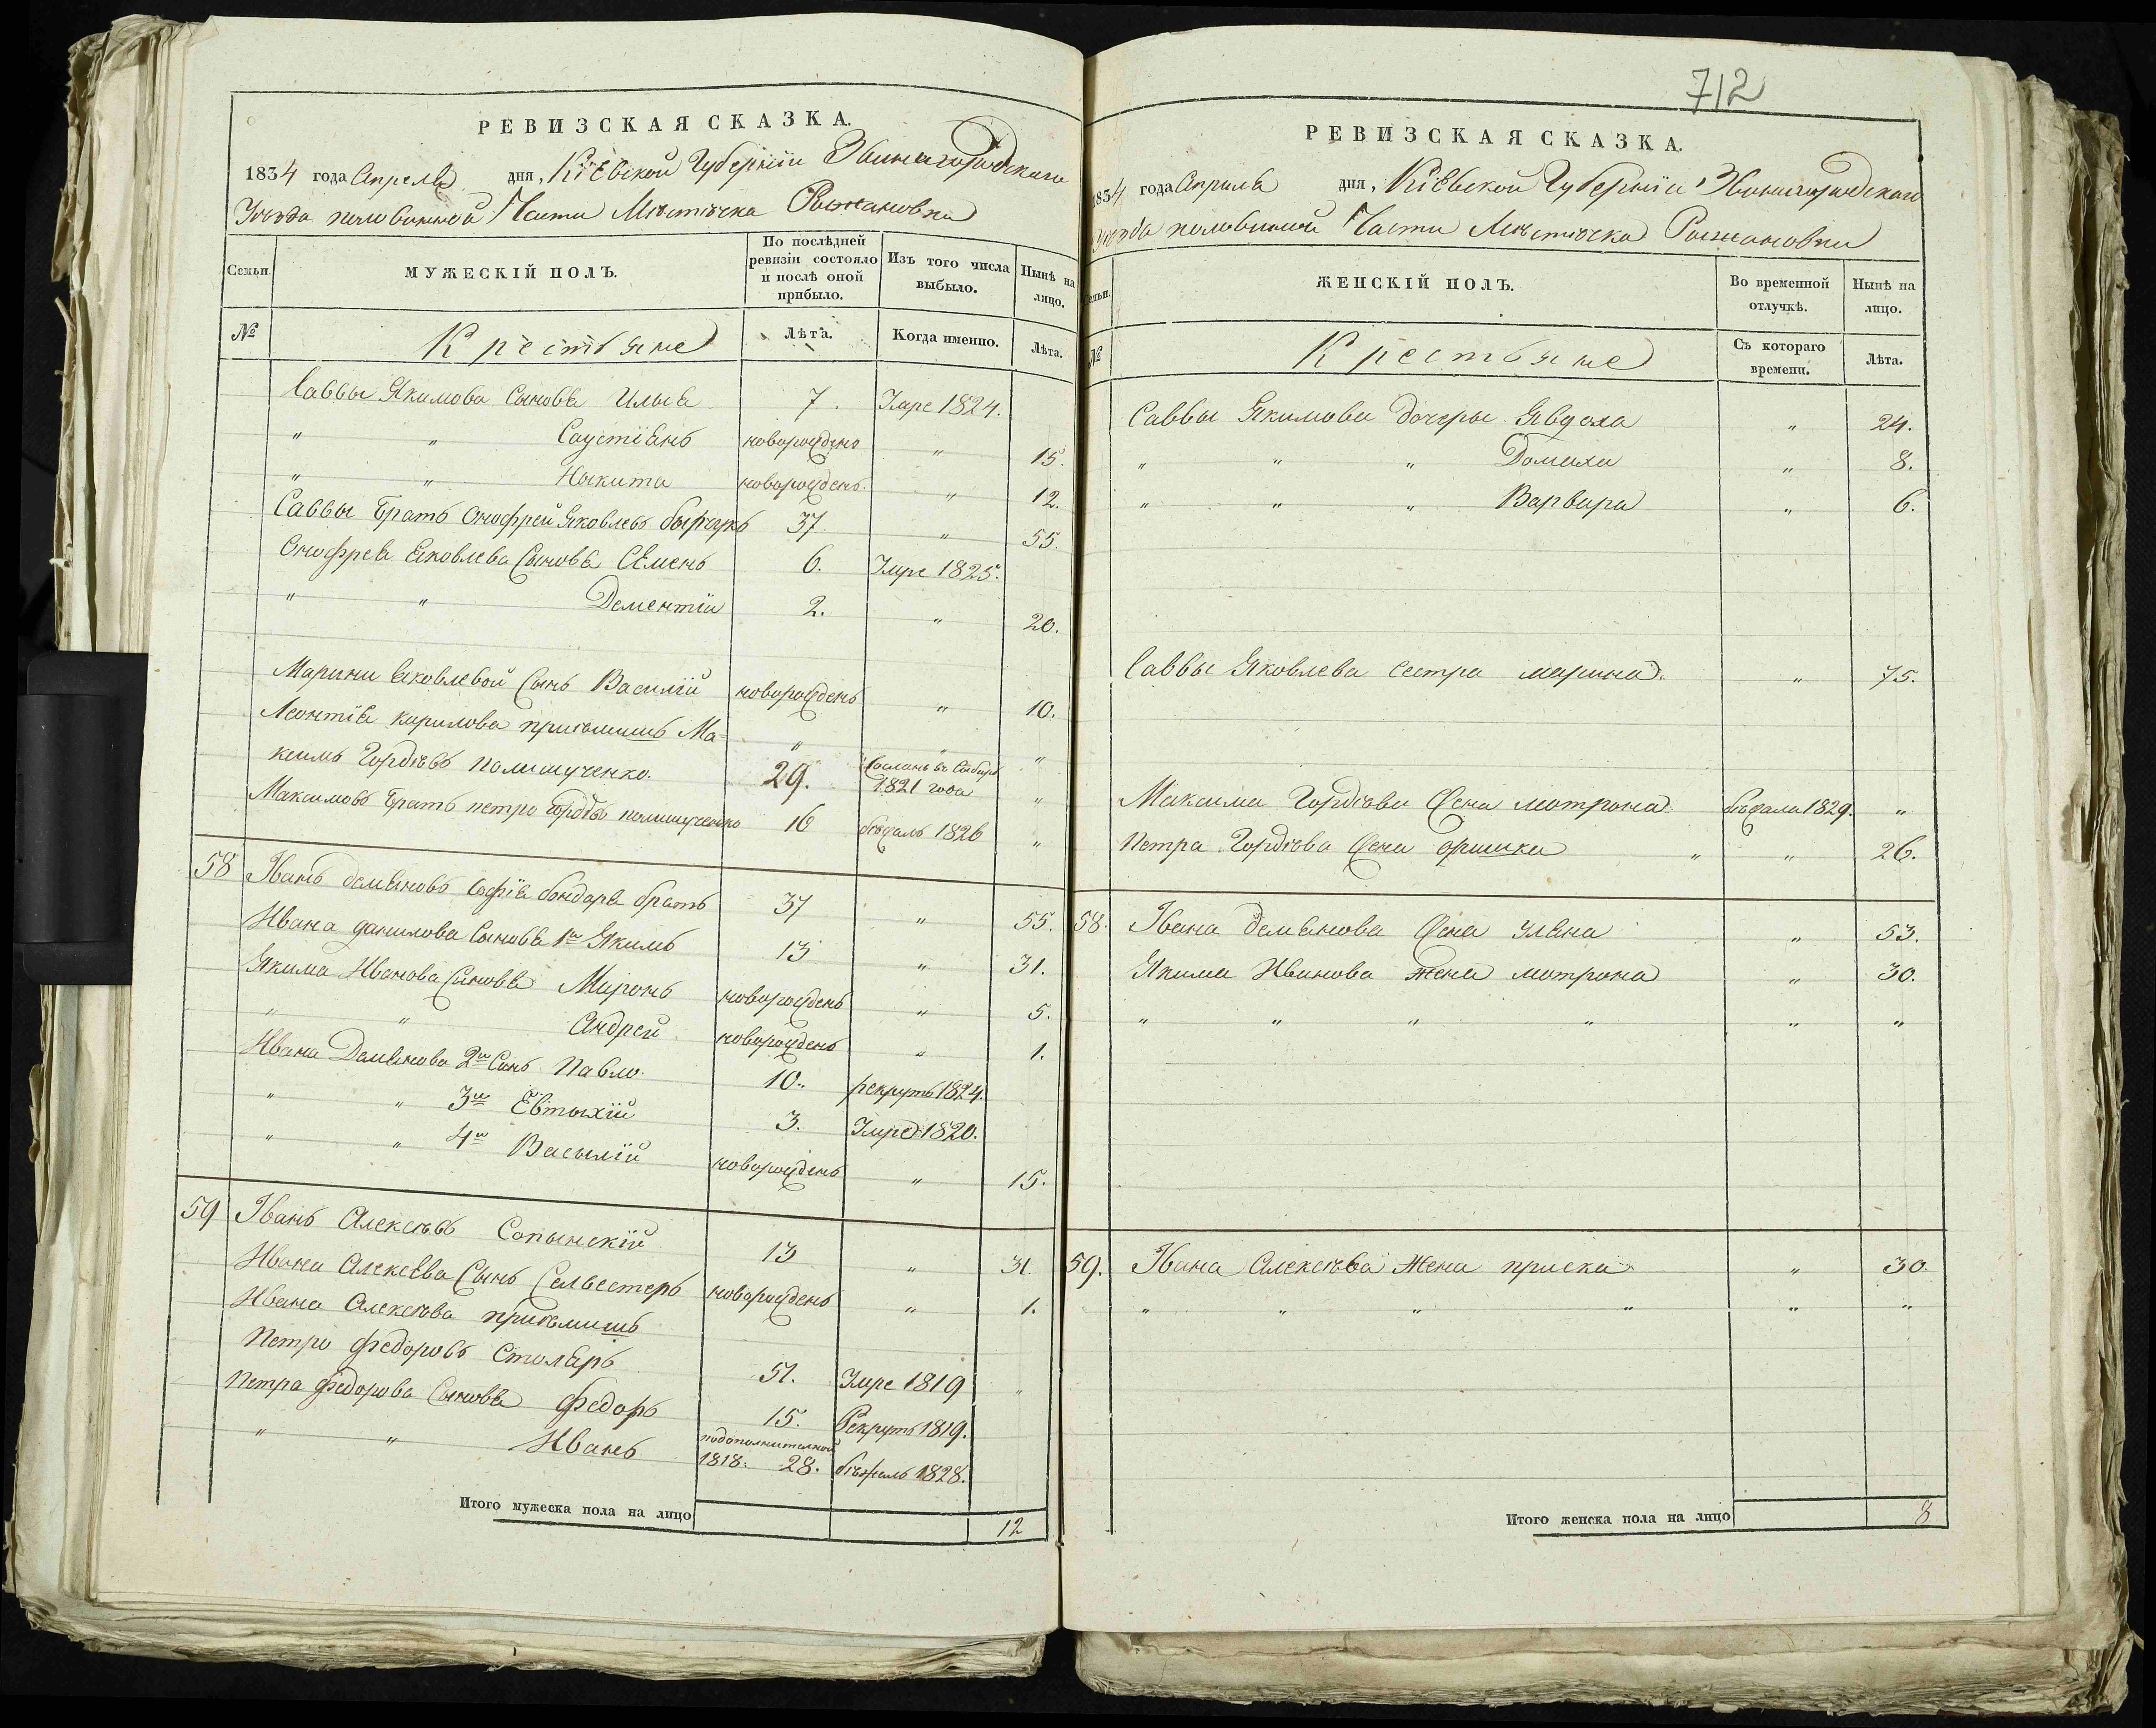 712
РЕВИЗСКАЯ СКАЗКА.
1834 года Апреля дня, Кіевской Губерніи Звенигородскаго
Уѣзда половинной Части Мѣстѣчка Рыжановки
Семьи. МУЖЕСКІЙ ПОЛЪ. По послѣдней ревизіи состояло и послѣ оной прибыло. Изъ того числа выбыло. Нынѣ на лицо.
№ Крестьяне Лѣта. Когда именно. Лѣта.
Саввы Якимова Сыновья Илья 7. Умре 1824.
" " Саустіянъ новорожденъ " 15.
" " Ныкита новорожденъ " 12.
Саввы Братъ Онофрей Яковлевъ 37 " 55.
Онофрея Яковлева Сыновья Семенъ 6. Умре 1825.
" " Дементіи 2. " 20.
Марини Яковлевой Сынъ Василій новорожденъ " 10.
Леонтія Кирилова пріемишъ Ма= " "
ксимъ Гордѣевъ Полищученко. 29. Сосланъ въ Сыбирь 1821 года "
Максимовъ Братъ петро Гордѣевъ полищученко 16 бѣжалъ 1826 "
58 Іванъ демяновъ Софія бондаря братъ 37 " 55.
Ивана данилова Сыновья 1й Якимъ 13 " 31.
Якима Иванова Сыновья Миронъ новорожденъ " 5.
" " Андрей новорожденъ " 1.
Ивана Демянова 2й Сынъ Павло 10. рекрутъ 1824.
" " 3й Евтыхій 3. Умре 1820.
" " 4й Васылій новорожденъ " 15.
59 Іванъ Алексѣевъ Сопынскій 13 " 31.
Ивана Алексѣева Сынъ Селвестеръ новорожденъ " 1.
Ивана Алексѣева пріемишъ
Петро федоровъ Столяръ 51. Умре 1819 "
Петра федорова Сыновья федоръ 15. Рекрутъ 1819.
" " Иванъ подополнителной 1818. 28. бѣжалъ 1828.
Итого мужеска пола на лицо 12
РЕВИЗСКАЯ СКАЗКА.
1834 года Апреля дня, Кіевской Губерніи Звенигородскаго
Уѣзда половинной Части Мѣстѣчка Рыжановки
Семьи. ЖЕНСКІЙ ПОЛЪ. Во временной отлучкѣ. Нынѣ на лицо.
№ Крестьяне Съ котораго времени. Лѣта.
Саввы Якимова дочеры Явдоха " 24.
" " " Домаха " 8.
" " " Варвара " 6.
Саввы Яковлева сестра марина " 75.
Максима Гордѣева Жена мотрона бѣжала 1829. "
Петра Гордѣева Жена оришка " " 26.
58. Івана демянова Жена уляна " 53.
Якима Иванова Жена мотрона " 30.
" " " " " "
59. Івана Алексѣева Жена приска " 30.
" " " " " "
Итого женска пола на лицо 8